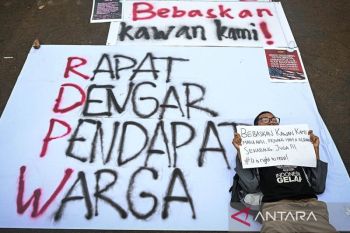 Bebaskan
kawan kami!
RAPAT
DENGAR
PENDAPAT
WARGA
BEBASKAN KAWAN KAMI
SEKARANG JUGA!!!
INDONESIA
GELAP
ANTARA